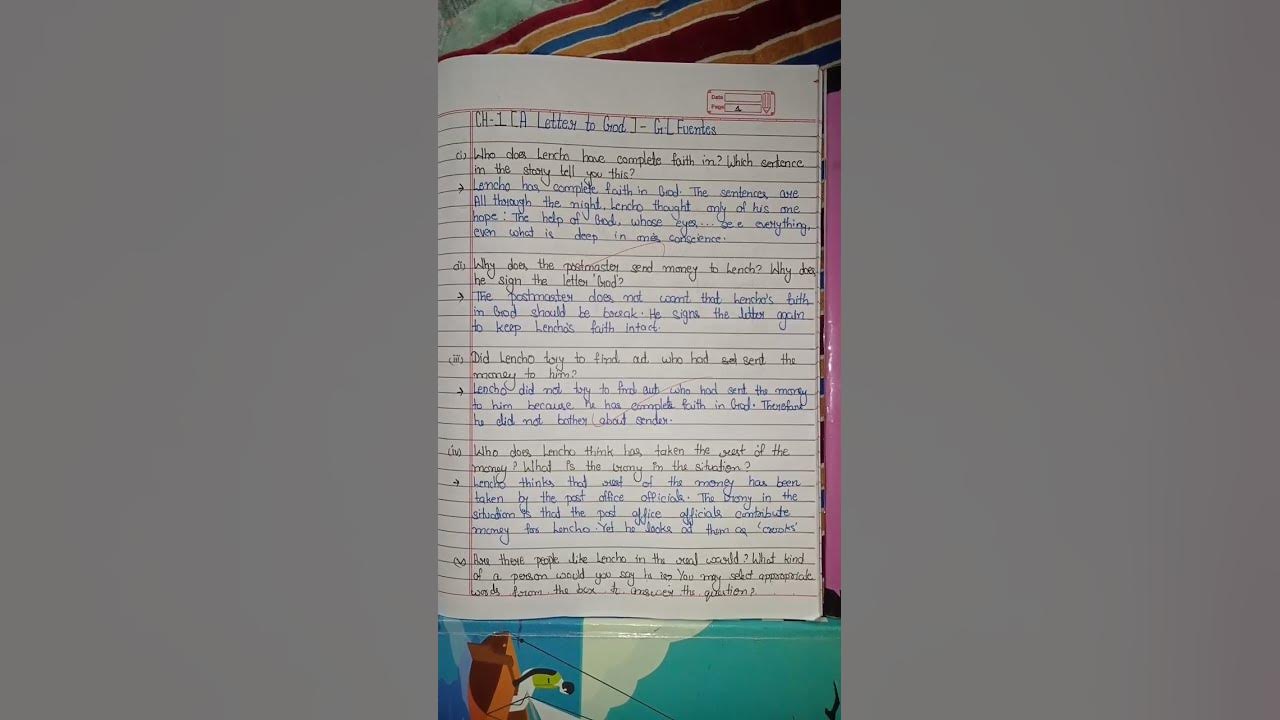 Date
Page 1
CH-1 [A Letter to God] - G.L Fuentes
(i) Who does Lencho have complete faith in? Which sentence
in the story tell you this?
→ Lencho has complete faith in God. The sentences are
All through the night, Lencho thought only of his one
hope: The help of God, whose eyes... see everything,
even what is deep in one's conscience.
(ii) Why does the postmaster send money to Lench? Why does
he sign the letter 'God'?
→ The postmaster does not want that Lencho's faith
in God should be break. He signs the letter again
to keep Lencho's faith intact.
(iii) Did Lencho try to find out who had sent the
money to him?
→ Lencho did not try to find out who had sent the money
to him because he has complete faith in God. Therefore
he did not bother about sender.
(iv) Who does Lencho think has taken the rest of the
money? What is the irony in the situation?
→ Lencho thinks that rest of the money has been
taken by the post office officials. The irony in the
situation is that the post office officials contribute
money for Lencho. Yet he looks at them as 'crooks'
(v) Are there people like Lencho in the real world? What kind
of a person would you say he is? You may select appropriate
words from the box to answer the question?